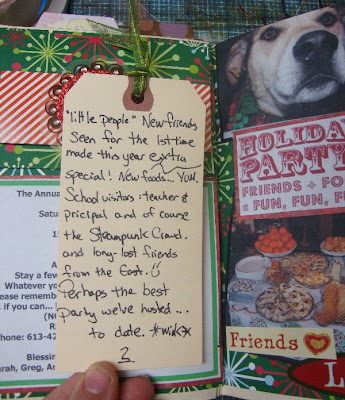 "little People" New friends
Seen for the 1st time
made this year extra
special! New foods... YUM.
School visitors: teacher &
pricipal and of course
the Steampunk Crowd.
and long-lost friends
from the East.
Perhaps the best
party we've hosted...
to date. *wink*
The Annua
Satu
1
A
Stay a few
Whatever yo
lease remembe
if you can...
(NO
R
hone: 613-42
Blessin
arah, Greg, an
HOLIDA
PARTY
FRIENDS + FO
= FUN, FUN, F
Friends
L